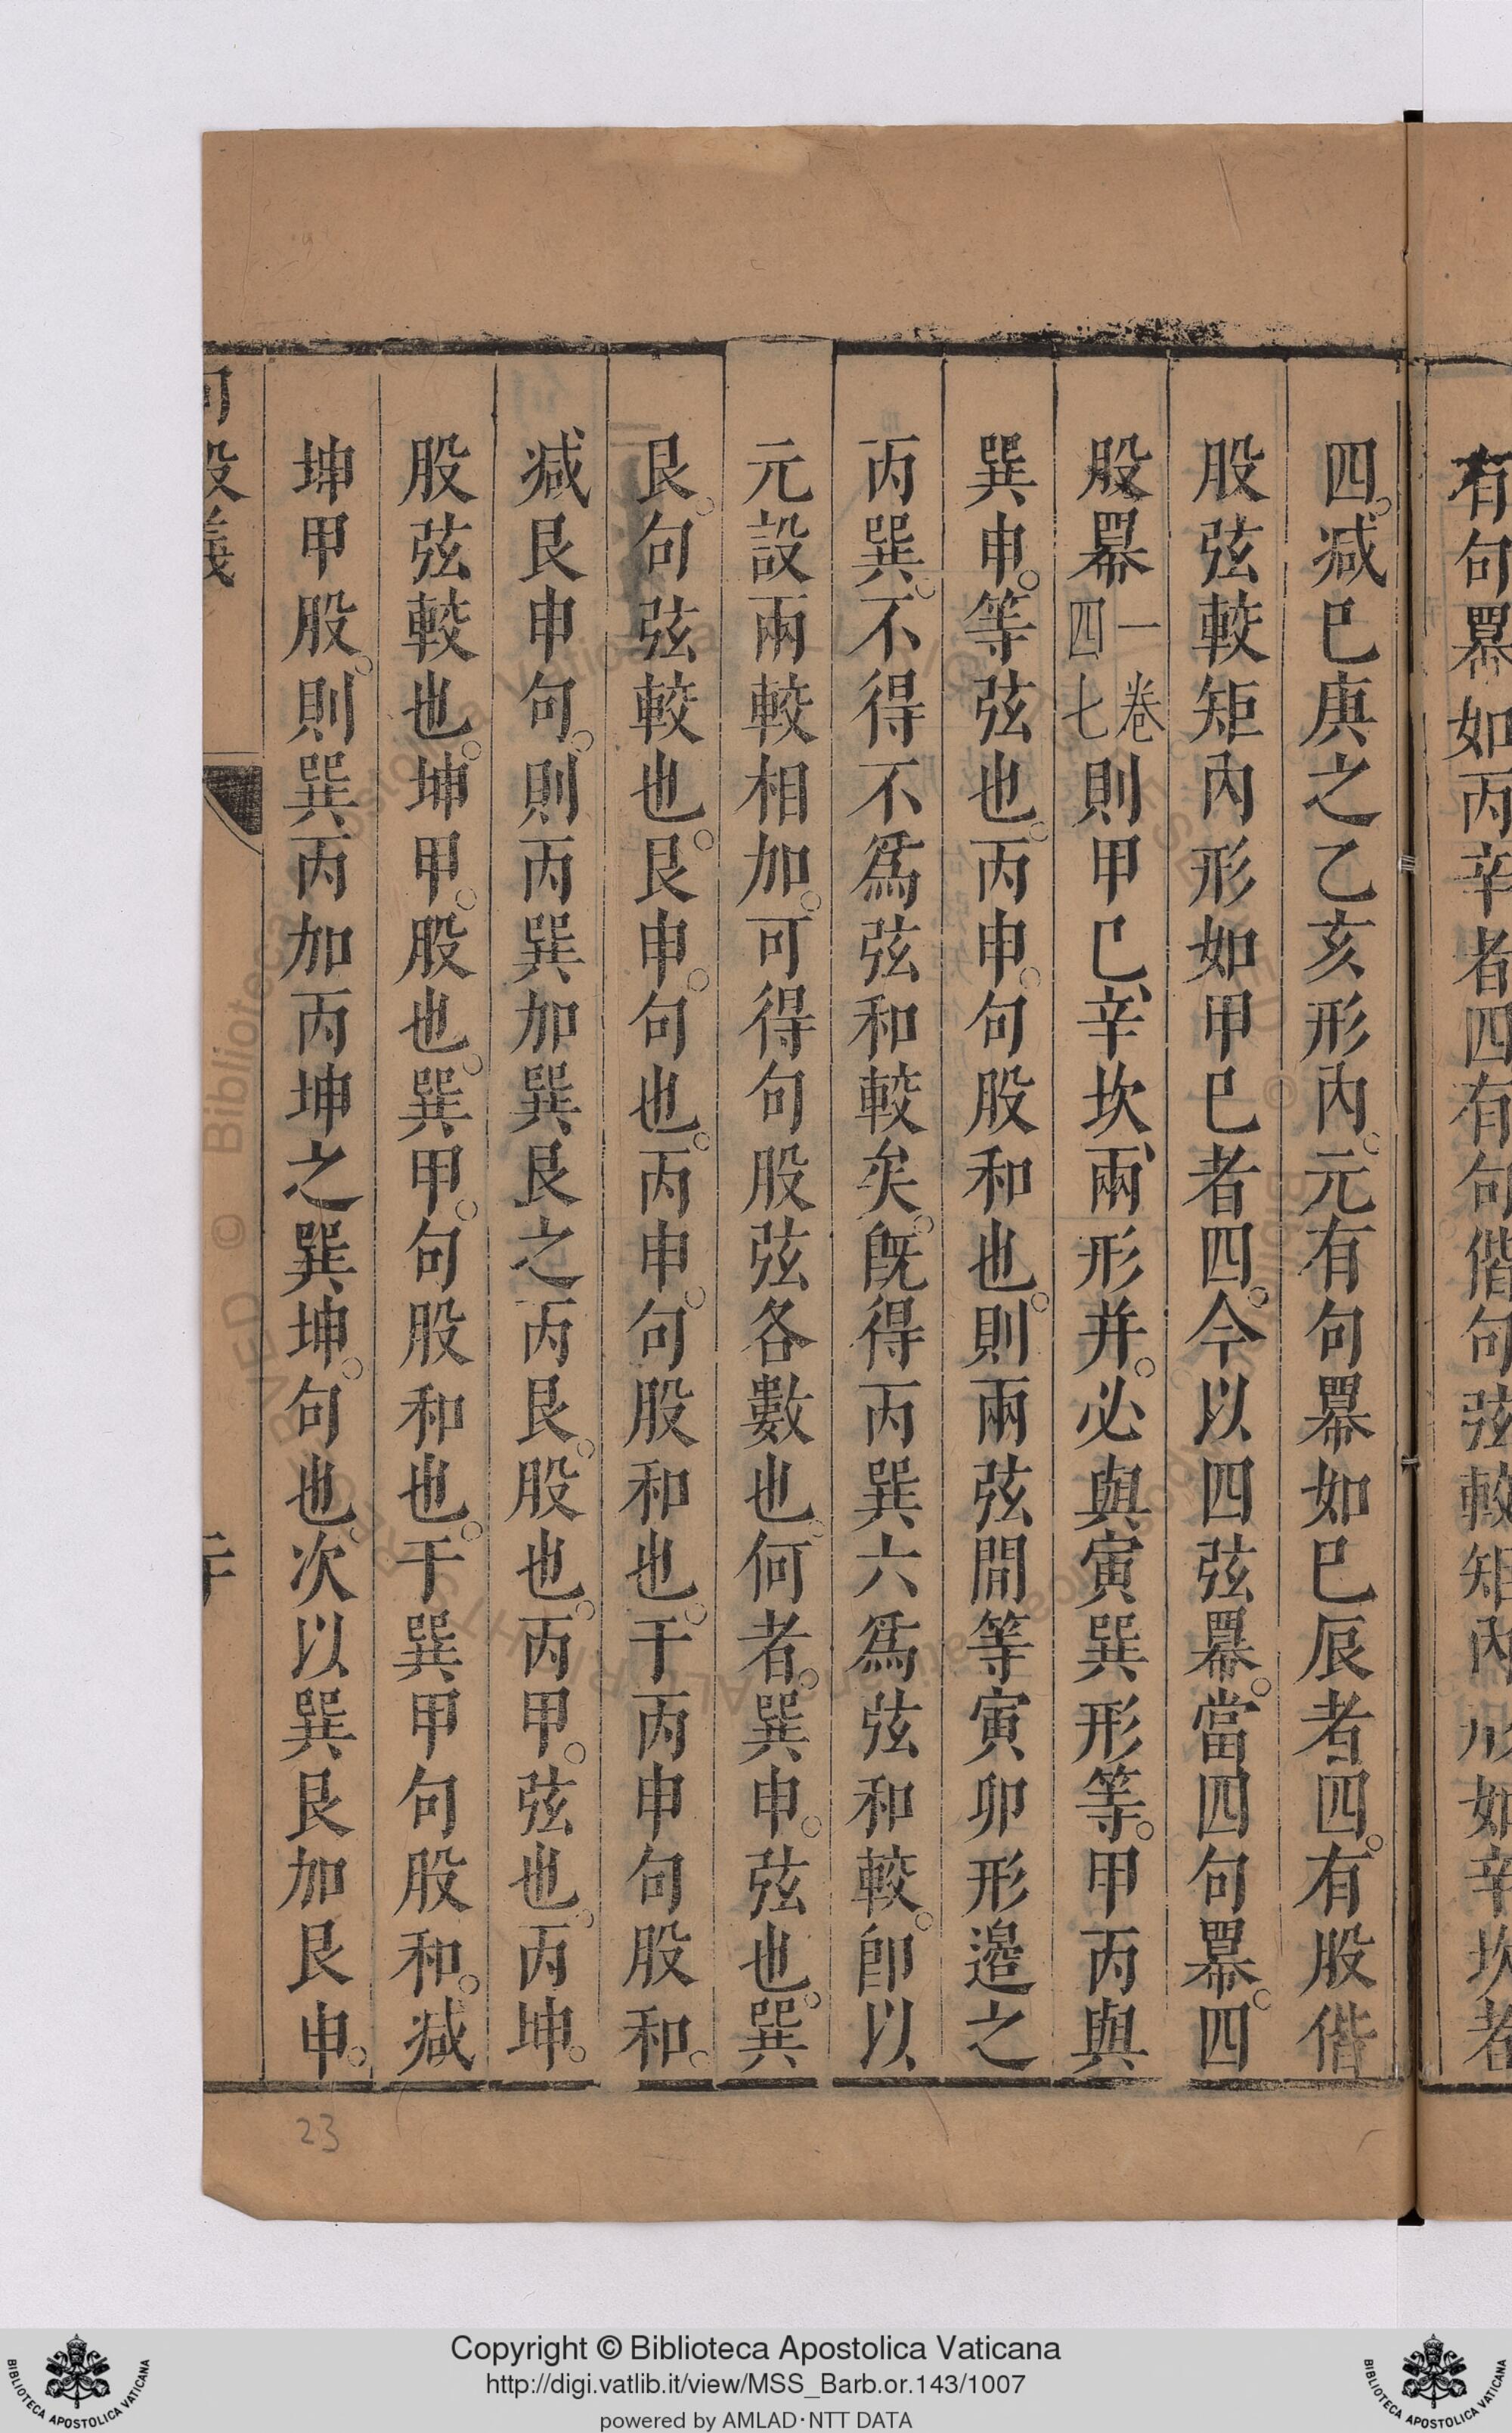 有句羃如丙辛者四有句偕句弦較矩內形如辛坎者
四。减巳庚之乙亥形內。元有句羃如巳辰者四。有股偕
股弦較矩內形如甲巳者四。今以四弦羃。當四句羃。四
股羃一卷四七則甲巳、辛坎、兩形并。必與寅巽形等。甲丙與
巽申。等弦也。丙申。句股和也。則兩弦間等寅卯形邉之
丙巽。不得不爲弦和較矣。旣得丙巽六爲弦和較。卽以
元設兩較相加。可得句股弦各數也。何者。巽申。弦也。巽
艮。句弦較也。艮申。句也。丙申。句股和也。于丙申句股和。
减艮申句。則丙巽加巽艮之丙艮。股也。丙甲。弦也。丙坤。
股弦較也。坤甲。股也。巽甲。句股和也。于巽甲句股和。减
坤甲股。則巽丙加丙坤之巽坤。句也。次以巽艮加艮申。
句股義
23
Copyright © Biblioteca Apostolica Vaticana
http://digi.vatlib.it/view/MSS_Barb.or.143/1007
powered by AMLAD·NTT DATA
BIBLIOTECA APOSTOLICA VATICANA
BIBLIOTECA APOSTOLICA VATICANA